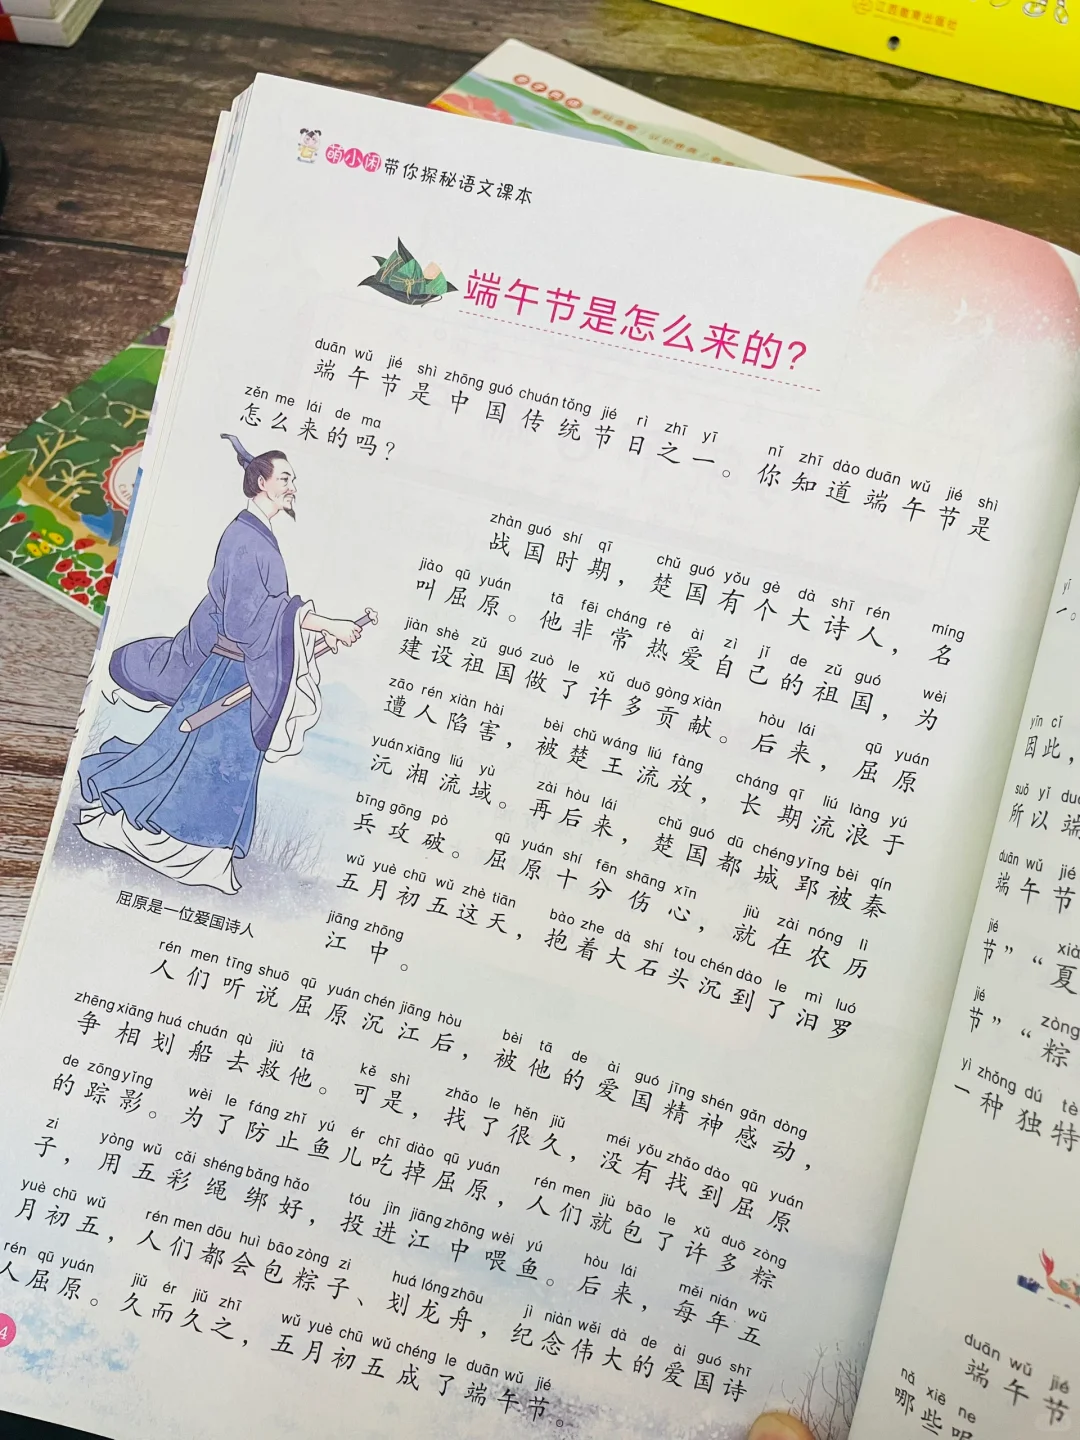 江西教育出版社
萌小闲带你探秘语文课本
端午节是怎么来的？
duān wǔ jié shì zhōng guó chuán tǒng jié rì zhī yī nǐ zhī dào duān wǔ jié shì
端午节是中国传统节日之一。你知道端午节是
zěn me lái de ma
怎么来的吗？
zhàn guó shí qī chǔ guó yǒu gè dà shī rén míng
战国时期，楚国有个大诗人，名
jiào qū yuán tā fēi cháng rè ài zì jǐ de zǔ guó wèi
叫屈原。他非常热爱自己的祖国，为
jiàn shè zǔ guó zuò le xǔ duō gòng xiàn hòu lái qū yuán
建设祖国做了许多贡献。后来，屈原
zāo rén xiàn hài bèi chǔ wáng liú fàng cháng qī liú làng yú
遭人陷害，被楚王流放，长期流浪于
yuán xiāng liú yù zài hòu lái chǔ guó dū chéng yǐng bèi qín
沅湘流域。再后来，楚国都城郢被秦
bīng gōng pò qū yuán shí fēn shāng xīn jiù zài nóng lì
兵攻破。屈原十分伤心，就在农历
wǔ yuè chū wǔ zhè tiān bào zhe dà shí tou chén dào le mì luó
五月初五这天，抱着大石头沉到了汨罗
jiāng zhōng
江中。
屈原是一位爱国诗人
rén men tīng shuō qū yuán chén jiāng hòu bèi tā de ài guó jīng shén gǎn dòng
人们听说屈原沉江后，被他的爱国精神感动，
zhēng xiāng huá chuán qù jiù tā kě shì zhǎo le hěn jiǔ méi yǒu zhǎo dào qū yuán
争相划船去救他。可是，找了很久，没有找到屈原
de zōng yǐng wèi le fáng zhǐ yú ér chī diào qū yuán rén men jiù bāo le xǔ duō zòng
的踪影。为了防止鱼儿吃掉屈原，人们就包了许多粽
zi yòng wǔ cǎi shéng bǎng hǎo tóu jìn jiāng zhōng wèi yú hòu lái měi nián wǔ
子，用五彩绳绑好，投进江中喂鱼。后来，每年五
yuè chū wǔ rén men dōu huì bāo zòng zi huá lóng zhōu jì niàn wěi dà de ài guó shī
月初五，人们都会包粽子、划龙舟，纪念伟大的爱国诗
rén qū yuán jiǔ ér jiǔ zhī wǔ yuè chū wǔ chéng le duān wǔ jié
人屈原。久而久之，五月初五成了端午节。
4
yī
一。
yīn cǐ
因此，
suǒ yǐ
所以端
duān wǔ jié
端午节
jié
节”“夏
jié zòng
节”“粽
yì zhǒng dú tè
一种独特
duān wǔ jié
端午节
nǎ xiē ne
哪些呢